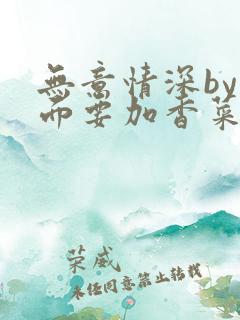 無意情深by
而要加香菜
荣威
未经同意禁止转载